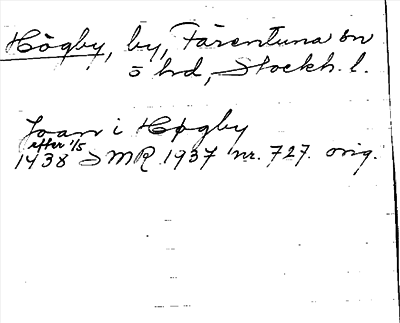 Högby, by, Färentuna sn
ö hd, Stockh. l.
Joan i Høgby
efter 1/5
1438 SMR 1937 nr. 727. orig.